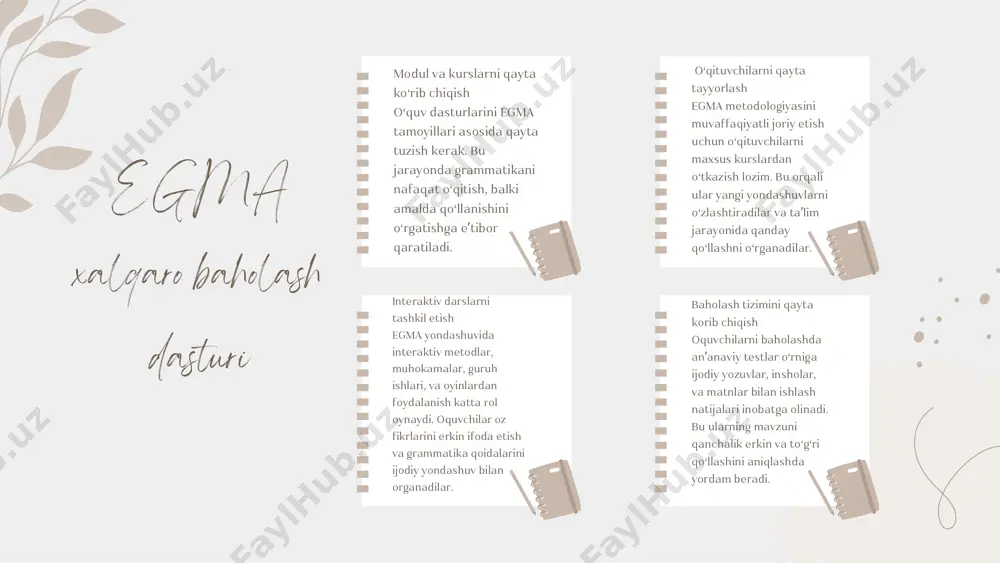 EGMA
xalqaro baholash
dasturi
Modul va kurslarni qayta
ko‘rib chiqish
O‘quv dasturlarini EGMA
tamoyillari asosida qayta
tuzish kerak. Bu
jarayonda grammatikani
nafaqat o‘qitish, balki
amalda qo‘llanishini
o‘rgatishga e’tibor
qaratiladi.
O‘qituvchilarni qayta
tayyorlash
EGMA metodologiyasini
muvaffaqiyatli joriy etish
uchun o‘qituvchilarni
maxsus kurslardan
o‘tkazish lozim. Bu orqali
ular yangi yondashuvlarni
o‘zlashtiradilar va ta’lim
jarayonida qanday
qo‘llashni o‘rganadilar.
Interaktiv darslarni
tashkil etish
EGMA yondashuvida
interaktiv metodlar,
muhokamalar, guruh
ishlari, va oyinlardan
foydalanish katta rol
oynaydi. Oquvchilar oz
fikrlarini erkin ifoda etish
va grammatika qoidalarini
ijodiy yondashuv bilan
organadilar.
Baholash tizimini qayta
korib chiqish
Oquvchilarni baholashda
an’anaviy testlar o‘rniga
ijodiy yozuvlar, insholar,
va matnlar bilan ishlash
natijalari inobatga olinadi.
Bu ularning mavzuni
qanchalik erkin va to‘g‘ri
qo‘llashini aniqlashda
yordam beradi.
FaylHub.uz
FaylHub.uz
FaylHub.uz
FaylHub.uz
FaylHub.uz